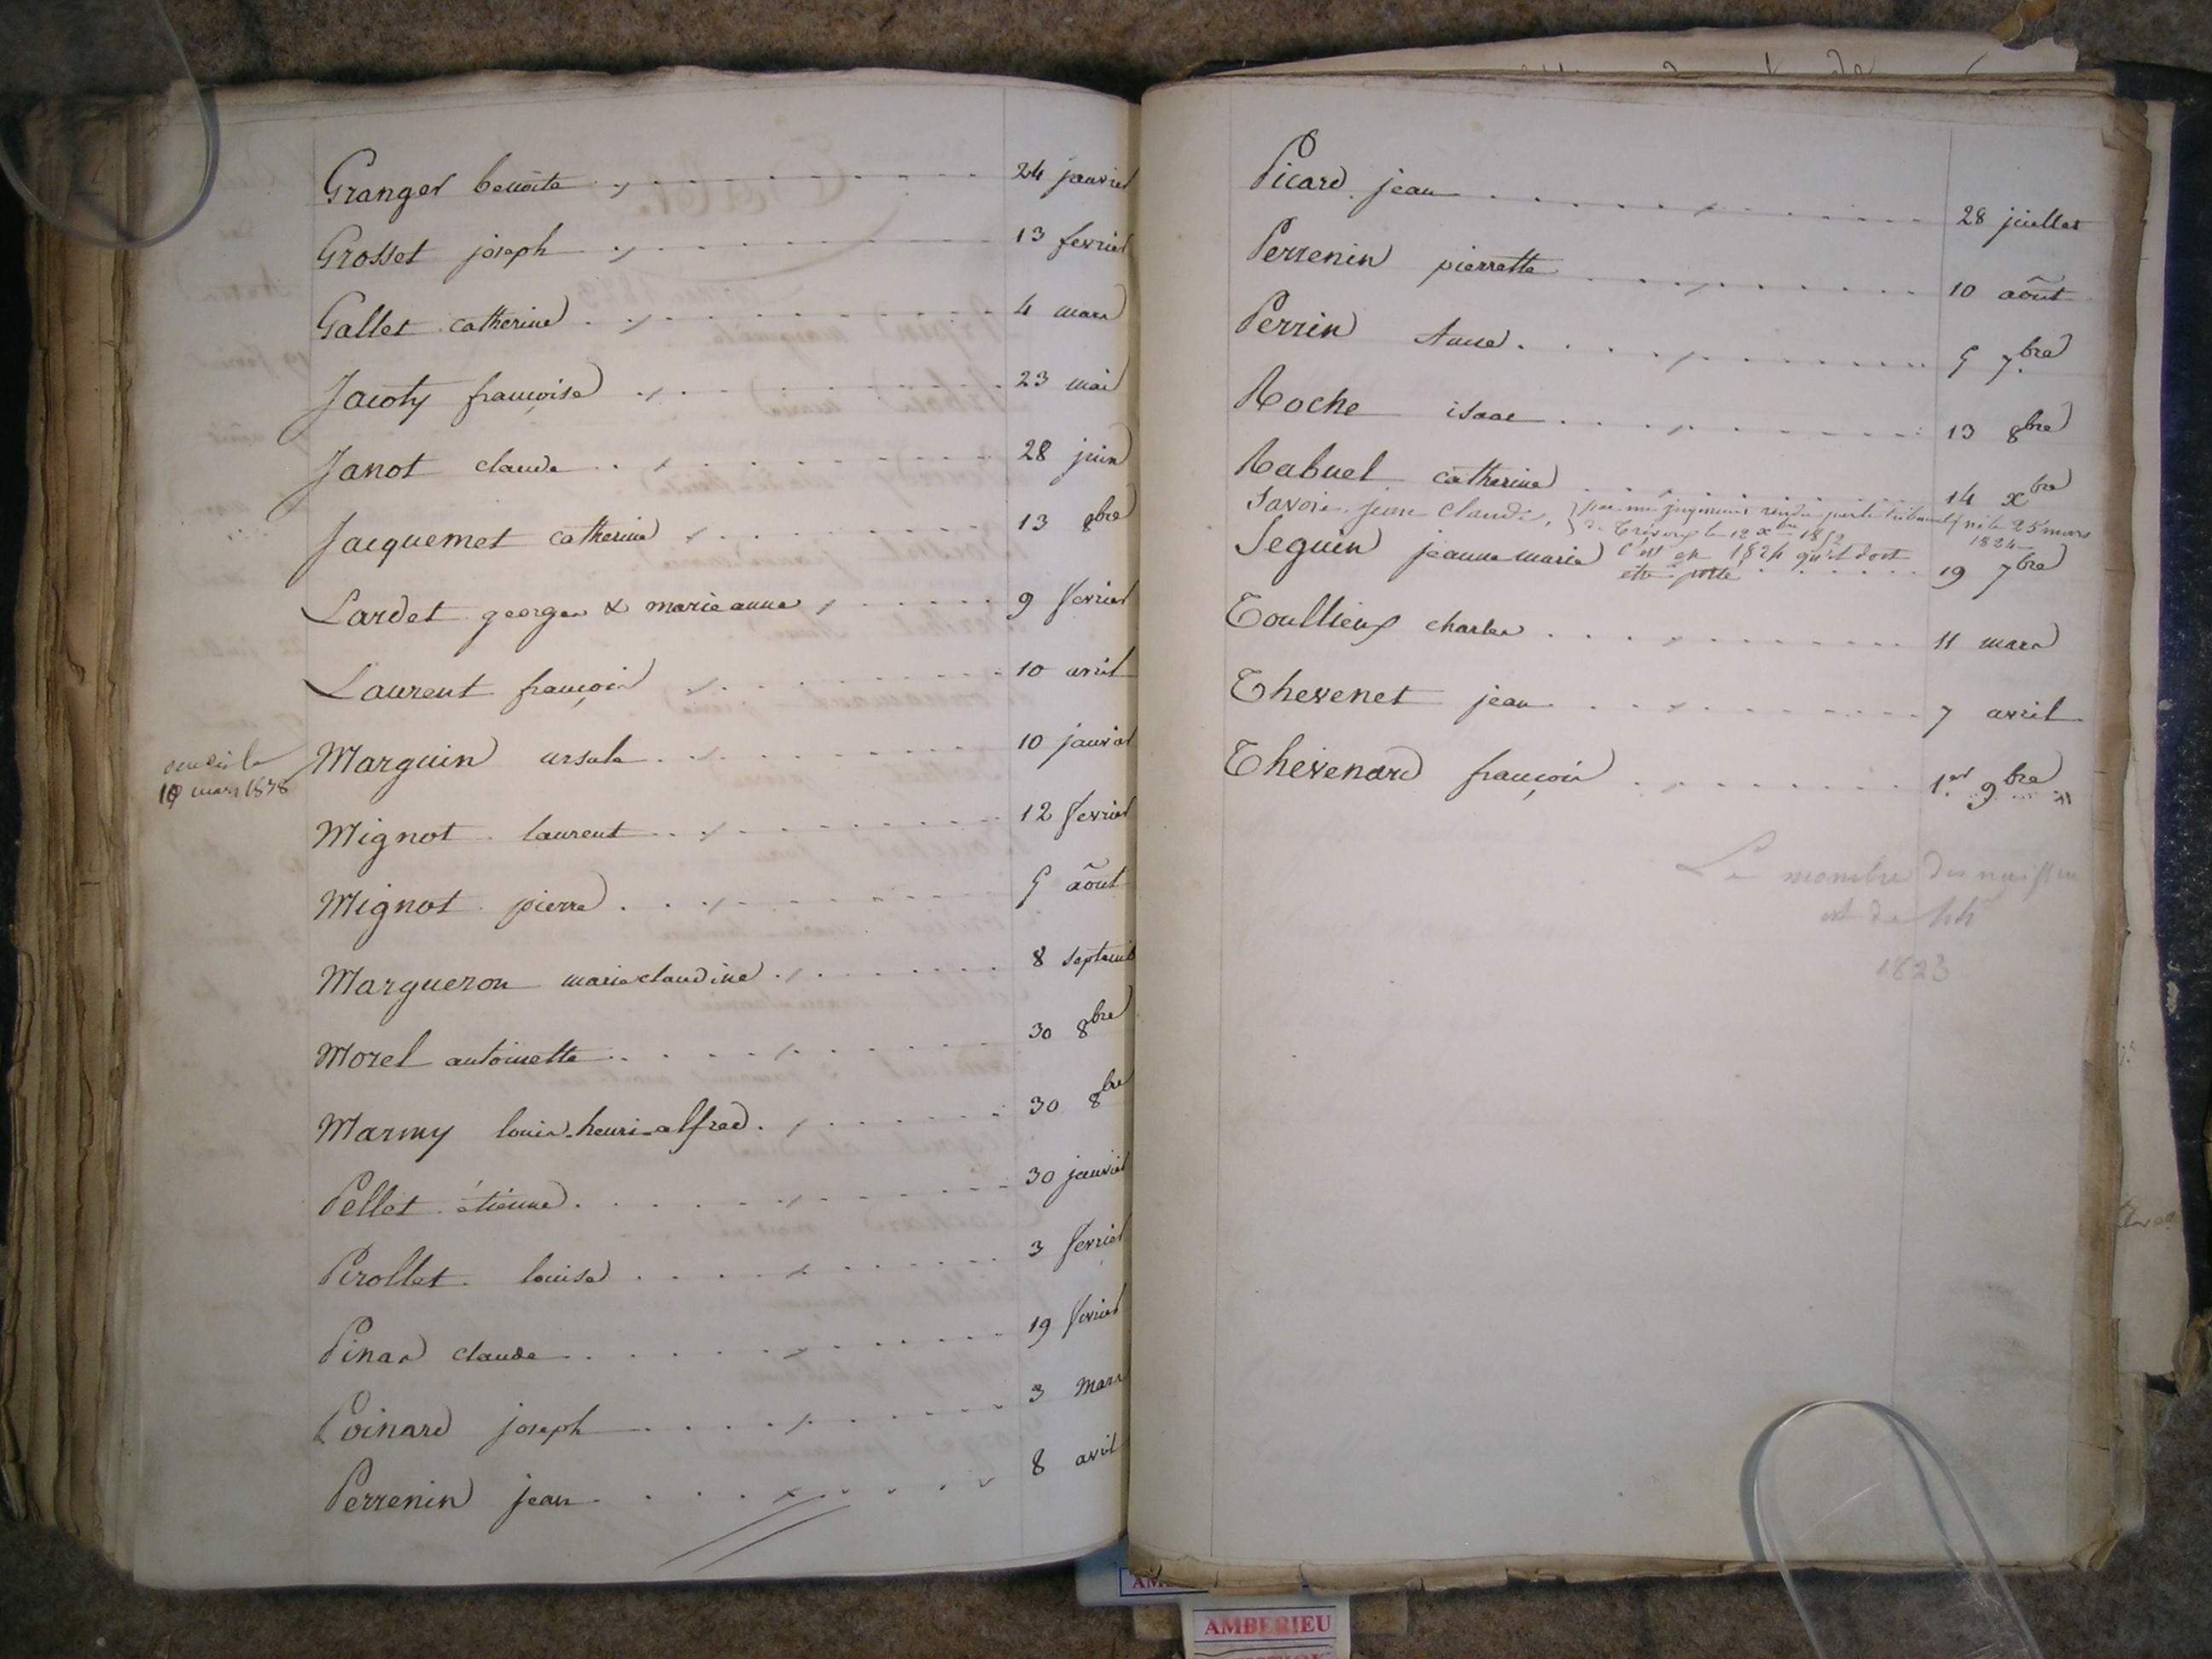 Granger benoite 24 janvier
Grosset joseph 13 fevrier
Gallet catherine 4 mars
Jacoty françoise 23 mai
Janot claude 28 juin
Jacquemet catherine 13 8bre
Lardet georges & marie anne 9 fevrier
Laurent françois 10 avril
Marguin ursule 10 janvier
mars 1838
Mignot laurent 12 fevrier
Mignot pierre 5 aôut
Margueron marie claudine 8 septemb
Morel antoinette 30 8bre
Marmy louis-henri-alfred 30 8bre
Pellet étienne 30 janvier
Pirollet louise 3 fevrier
Pinar claude 19 fevrier
Poinard joseph 3 Mars
Perrenin jean 8 avril
Picard jean 28 juillet
Perrenin pierrette 10 aôut
Perrin Anne 5 7bre
Roche isaac 13 8bre
Rabuel catherine 14 xbre
Savoie jean Claude, jugement rendu par le tribunal né le 25 mars
de Trévoux le 12 xbre 1824
Seguin jeanne marie c'est en 1824 qu'il doit 19 7bre
être porté
Toullieux charles 11 mars
Thevenet jean 7 avril
Thevenard françois 1er 9bre
Le nombre des
est de 44
1823
AMBERIEU